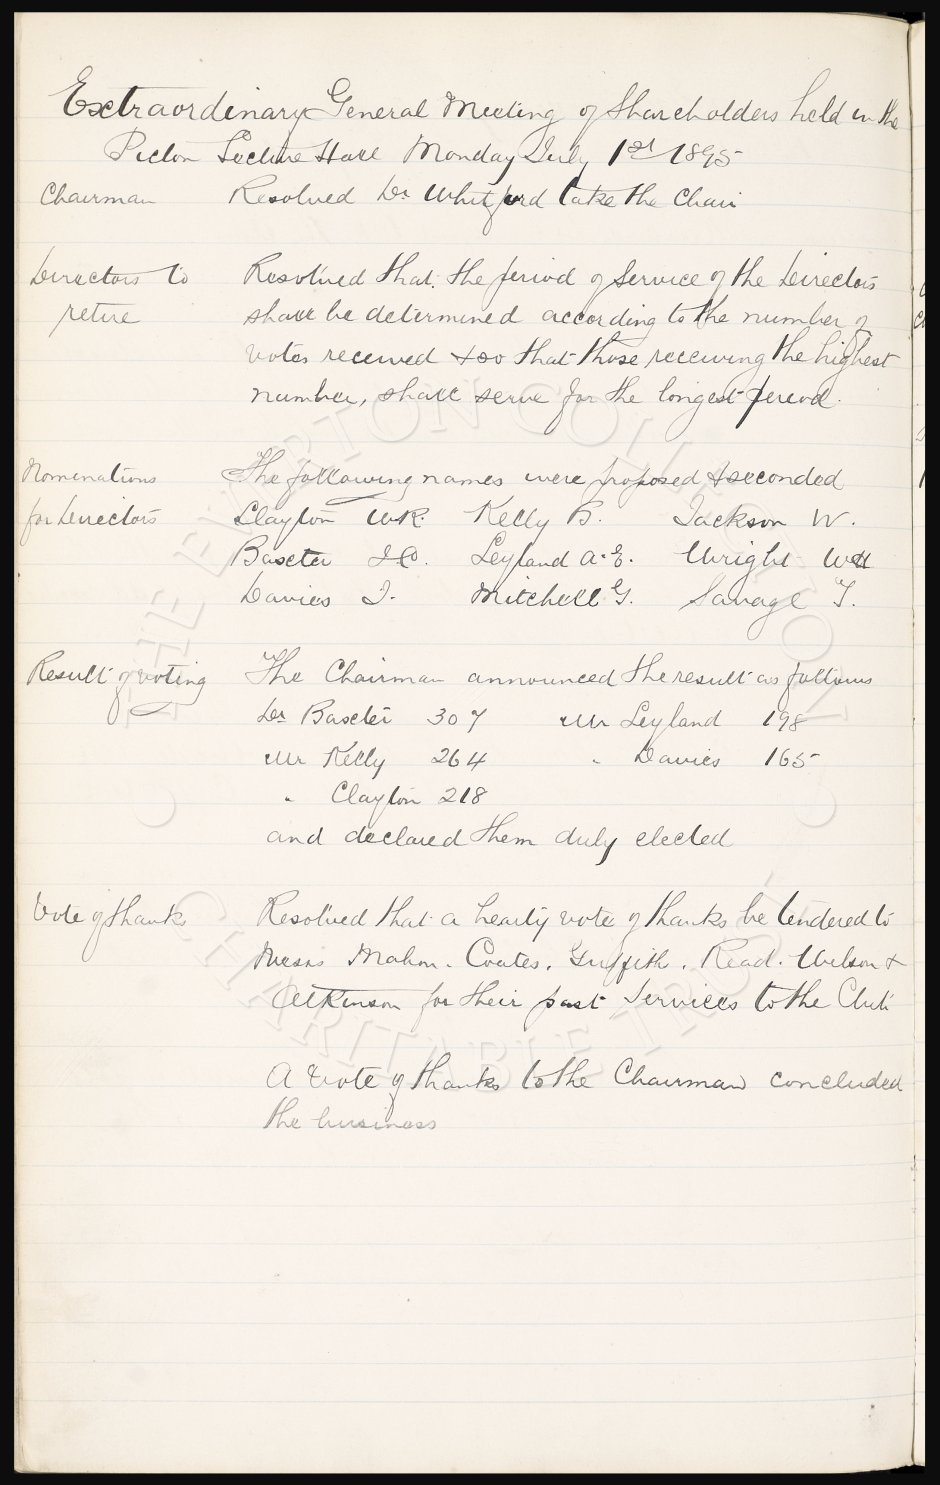 Extraordinary General Meeting of Shareholders held in the
Picton Lecture Hall Monday July 1st 1895
Chairman Resolved Dr Whitford take the Chair
Directors to Resolved that the period of Service of the Directors
retire shall be determined according to the number of
votes received & so that those receiving the highest
number, shall serve for the longest period.
Nominations The following names were proposed & seconded
for Directors Clayton W.R. Kelly B. Jackson W.
Baxter J.C. Leyland A.E. Wright W.H
Davies J. Mitchell G. Savage T.
Result of voting The Chairman announced the result as follows
Dr Baxter 307 Mr Leyland 198
Mr Kelly 264 " Davies 165
" Clayton 218
and declared them duly elected
Vote of thanks Resolved that a hearty vote of thanks be tendered to
Messrs Mahon. Coates. Griffith. Read. Wilson &
Atkinson for their past Services to the Club
A Vote of thanks to the Chairman concluded
the business
THE EVERTON COLLECTION
CHARITABLE TRUST